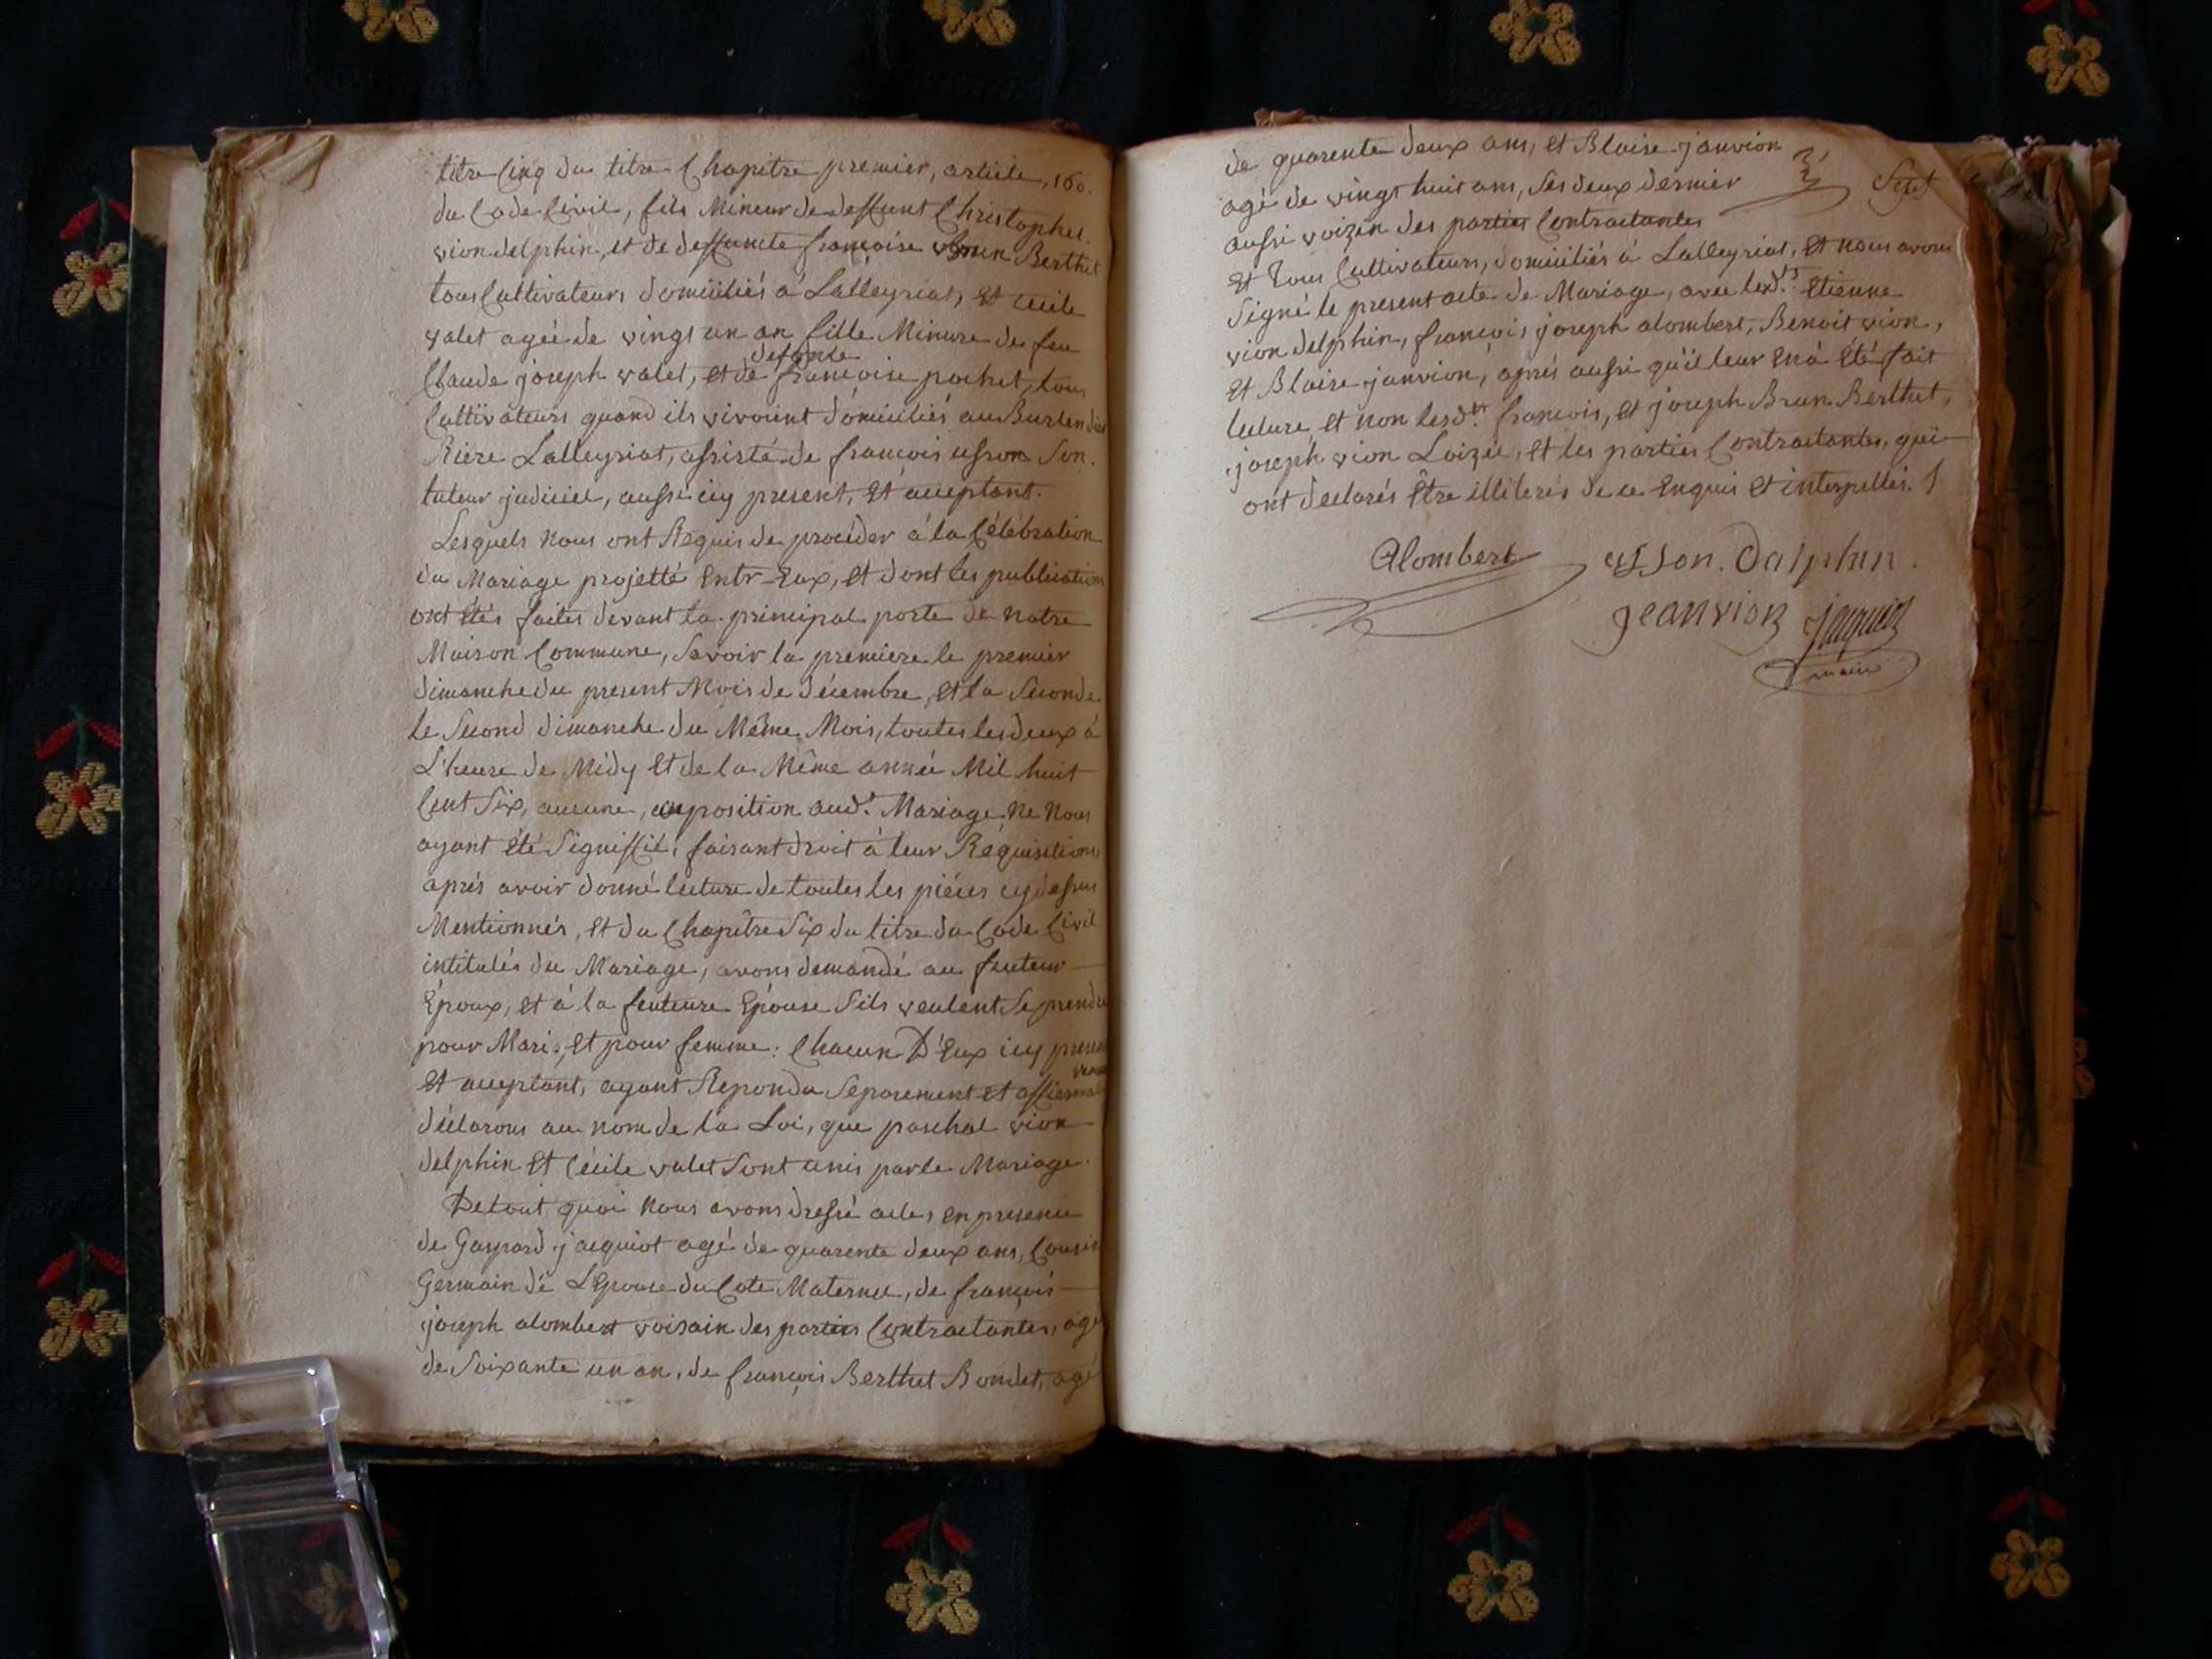 titre Cinq du titre Chapitre premier, article, 160.
du Code Civil, fils Mineur de deffunt Christophel.
vion delphin, et de deffuncte francoise Brun Berthet
tous Cultivateurs domiciliés à Lalleyriat, et cecile
valet agée de vingt un an fille Mineure de feu
Claude joseph valet, et de defonte francoise pochet, tous
Cultivateurs quand ils vivoint domiciliés au Burlandier
Riere Lalleyriat, assisté de francois usson Son.
tuteur judiciel, aussi icy present, et acceptant.
Lesquels nous ont Requis de procéder à la Célébration
du Mariage projetté Entr-Eux, et dont les publications
ont étés faites devant la principal porte de notre
Maison Commune, Savoir la premiere le premier
dimanche du present Mois de décembre, et la Seconde
le Second dimanche du Même Mois, toutes les deux à
L'heure de Midy et de la Même année Mil huit
Cent Six, aucune, opposition aud.t Mariage ne nous
ayant été Signiffié, faisant droit à leur Réquisition,
aprés avoir donné lecture de toutes les piéces cy dessus
Mentionnés, et du Chapître Six du titre du Code Civil
intitulés du Mariage, avons demandé au feuteur
Époux, et à la feuteure Épouse Sils veulent Se prendre
pour Mari, et pour femme: Chacun D'Eux icy present
et acceptant, ayant Repondu Séparement et affiermativement
déclarons au nom de la Loi, que paschal vion
delphin et Cécile valet Sont unis par le Mariage.
De tout quoi nous avons dressé acte, en presence
de Gaspard jacquiot agé de quarente deux ans, Cousin
Germain de L'Epouse du Cote Maternel, de françois
joseph alombert voisain des parties Contractantes, agé
de Soixante un an, de françois Berthet Bondet, agé
de quarente deux ans, et Blaise janvion
agé de vingt huit ans, Ses deux dernier
aussi voizin des parties Contractantes
et tous Cultivateurs, domiciliés à Lalleyriat, et nous avons
Signé le present acte de Mariage, avec lesd.ts Etienne
vion delphin, francois joseph alombert, Benoit vion,
et Blaise janvion, aprés aussi qu'il leur En à Été fait
lecture, et non lesd.ts francois, et joseph Brun Berthet,
joseph vion Loizée, et les parties Contractantes, qui
ont declarés Être illiterés de ce Enquis et interpellés.
Alombert usson. Dalphin.
jeanvion jaquiot
maire